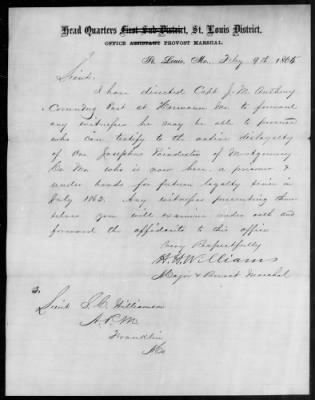 Head Quarters First Sub-District, St. Louis District,
OFFICE ASSISTANT PROVOST MARSHAL.
St. Louis, Mo. Feby 9th 1865
Lieut.
I have directed Capt J. M. Anthony
Comndg Post at Hermann Mo to forward
any witnesses he may be able to procure
who can testify to the active disloyalty
of one Josephus of Montgomery
Co Mo. who is now here a prisoner &
under bonds for future loyalty since in
July 1862. Any witnesses presenting them
selves you will examine under oath and
forward the affidavits to this office
Very Respectfully
H. H. Williams
Major & Provost Marshal
Lieut S. C. Williamson
A.P.M.
Franklin
Mo